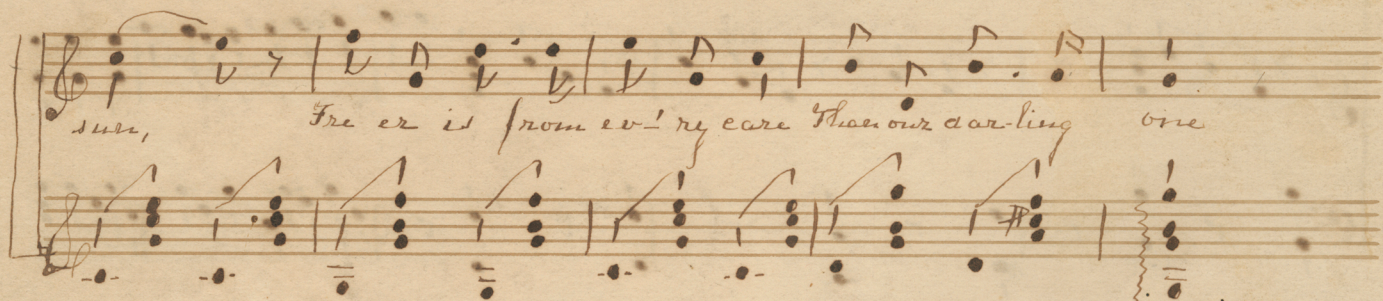 sun, Free er is from ev-'ry care Than our dar-ling one